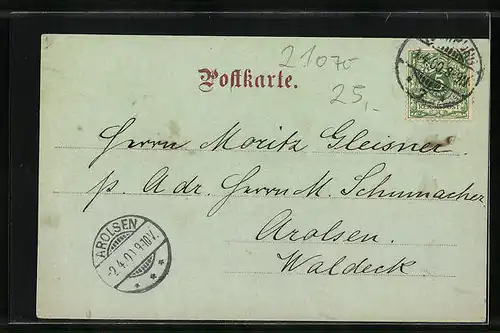 21070
25,-
Postkarte.
5
REICHSPOST
Herrn Moritz Gleisner
p. Adr. Herrn M. Schumacher
Arolsen.
Waldeck.
AROLSEN
-2.4.00.9-10V.
* * *